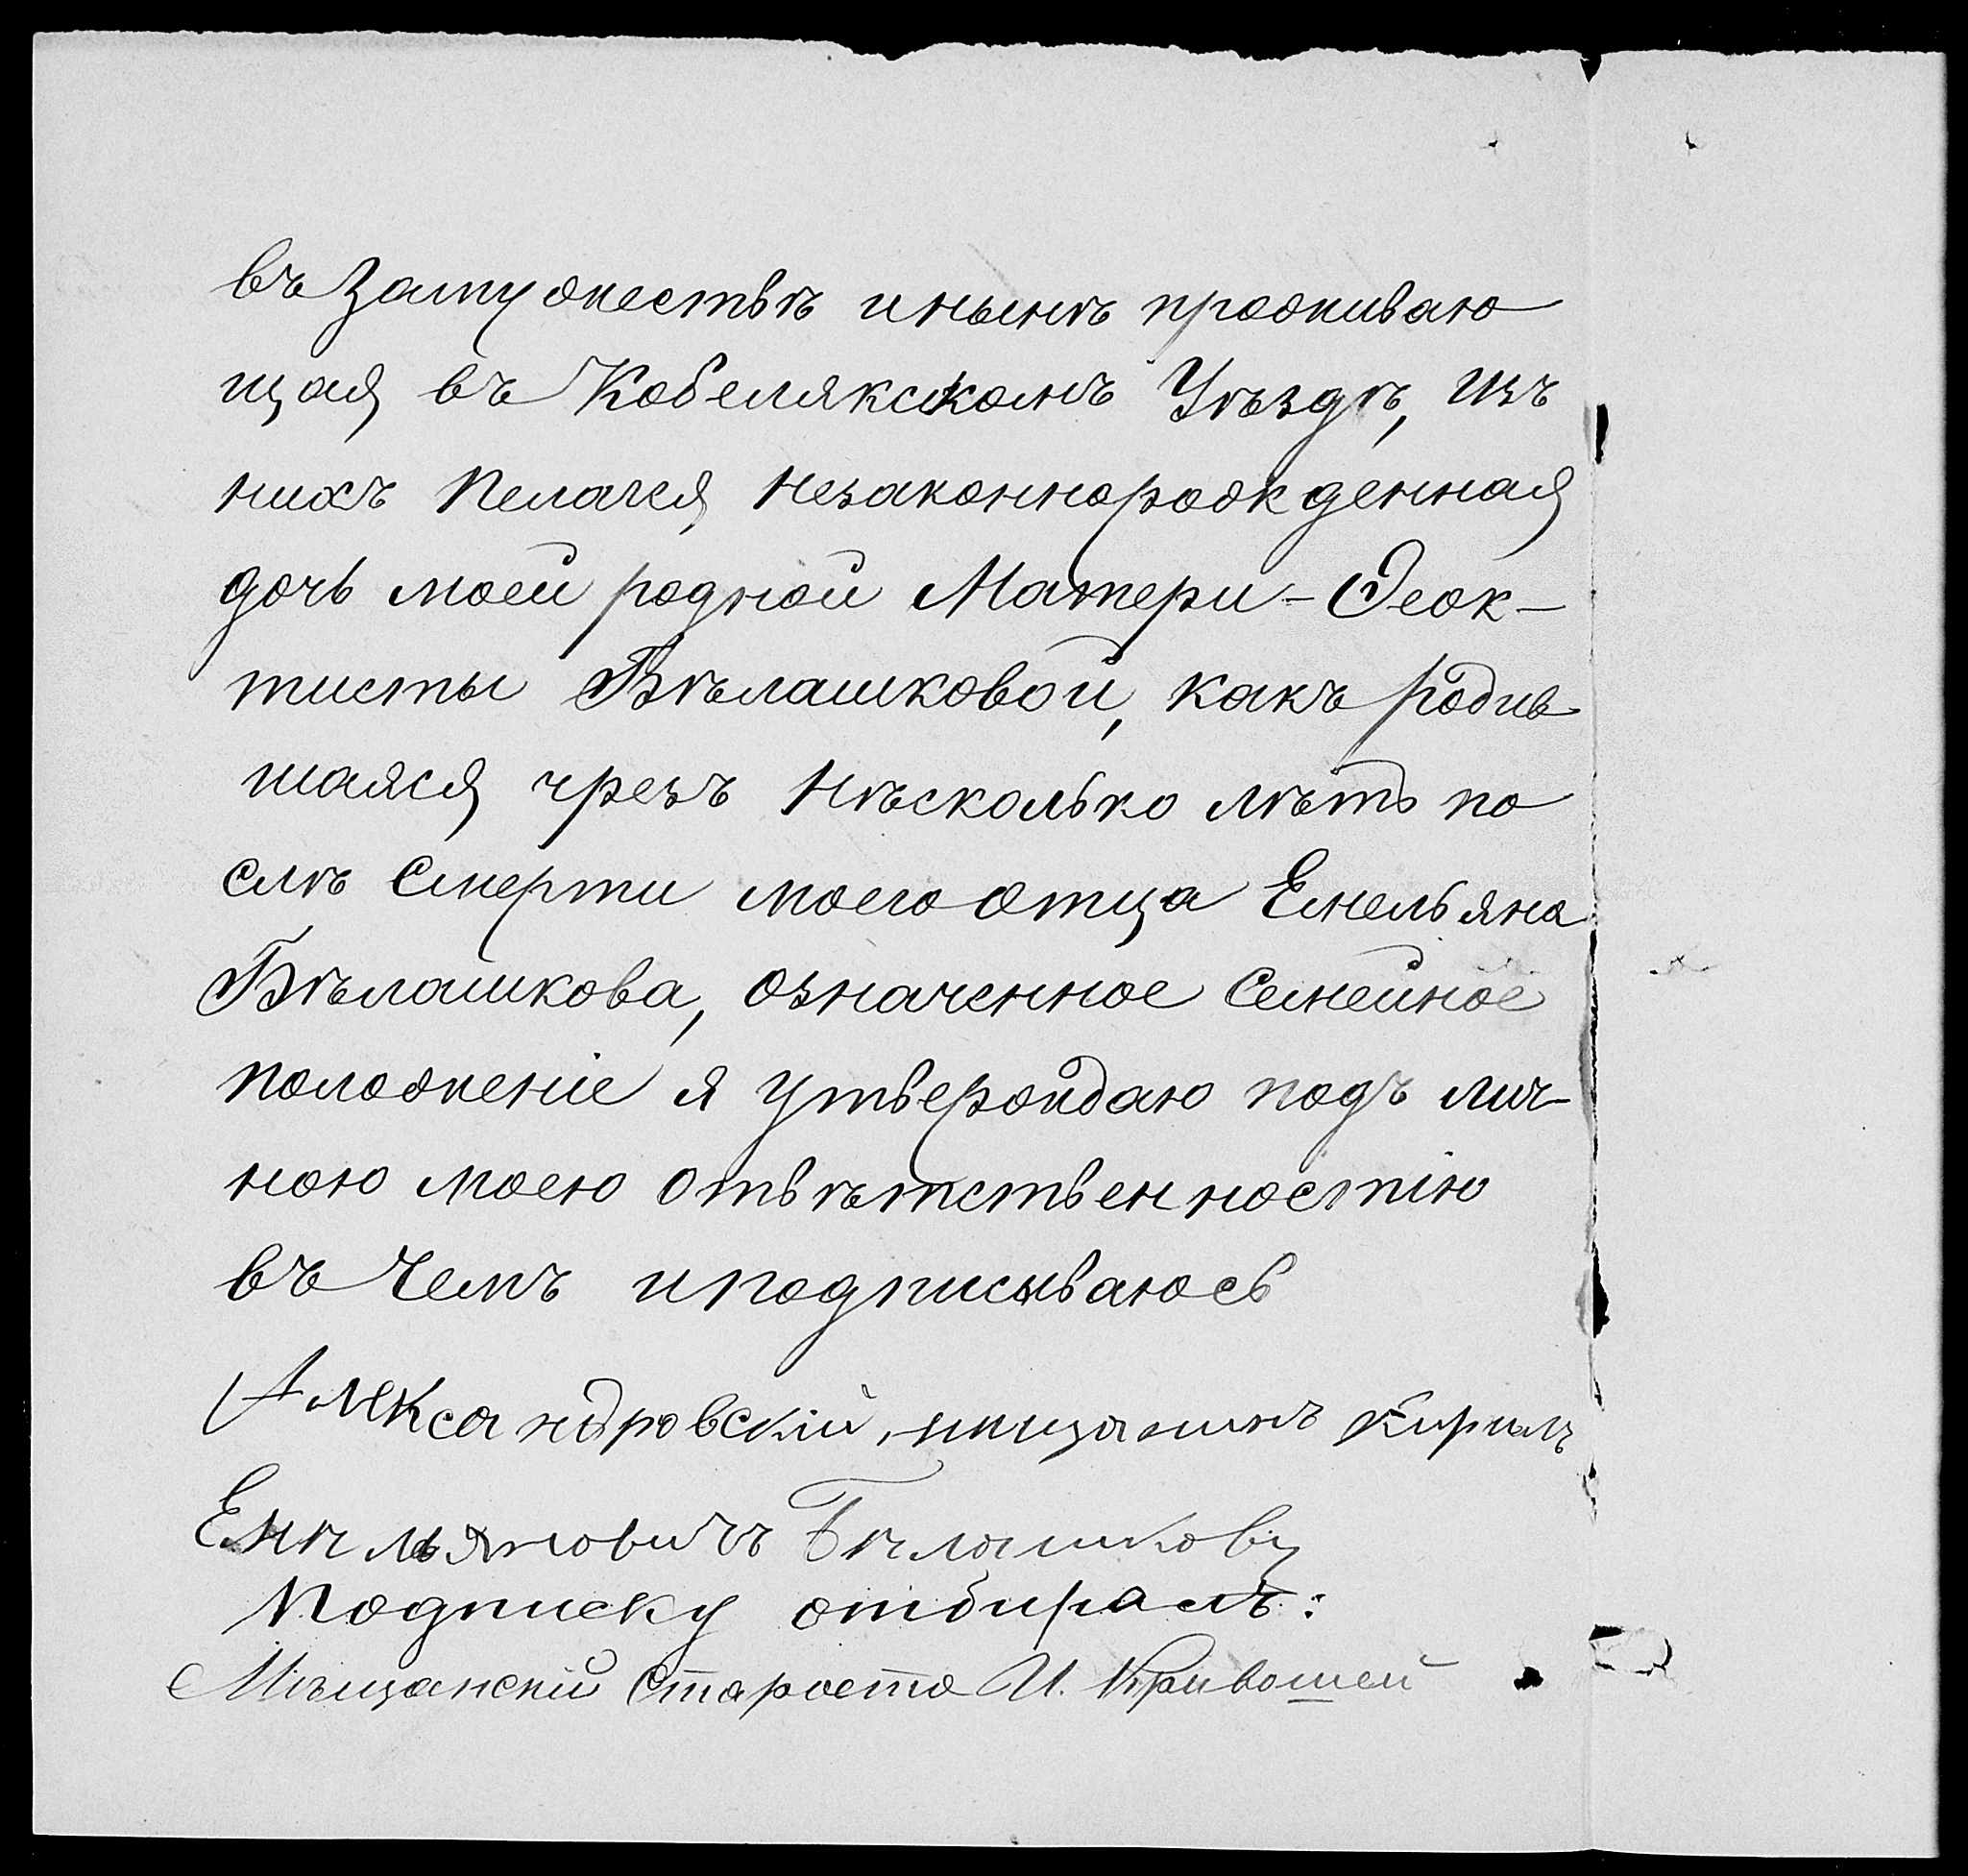 въ замужествѣ и нынѣ проживаю
щая въ Кобелякскомъ Уѣздѣ, Изъ
нихъ Пелагея незаконнорожденная
дочь моей родной Матери - Ѳеок-
тисты Бѣлашковой, какъ родив
шаяся чрезъ Нѣсколько лѣтъ по
слѣ Смерти моего отца Емельяна
Бѣлашкова, означенное Семейное
положеніе я утверждаю подъ лич-
ною моею отвѣтственностію
въ чемъ и подписываюсь
Александровскій мищанинъ Кирилъ
Емельяновичъ Бѣлашковъ
Подписку отбиралъ:
Мѣщанскій Староста И. Кривошей